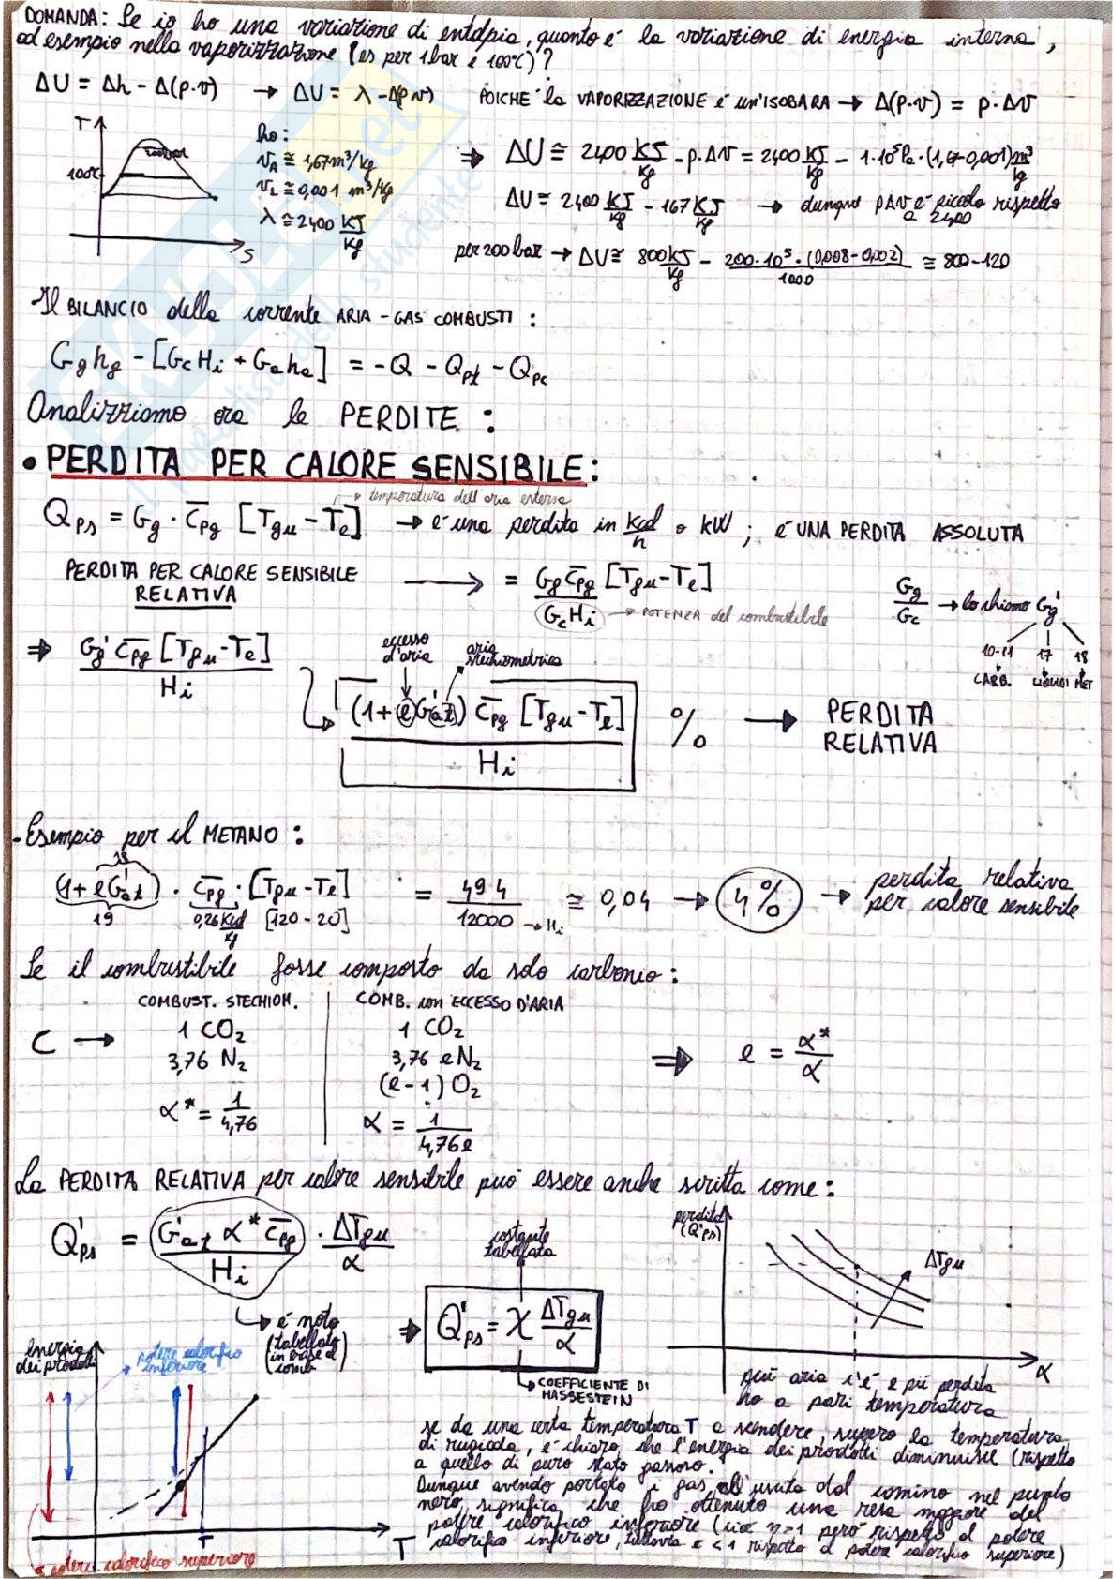 DOMANDA: Se io ho una variazione di entalpia, quanto è la variazione di energia interna,
ad esempio nella vaporizzazione (es per 1bar e 100°C)?
ΔU = Δh - Δ(p·v) → ΔU = λ - Δ(pv) POICHÉ la VAPORIZZAZIONE è un'ISOBARA → Δ(p·v) = p·Δv
T
100°C
S
ho:
v_A ≅ 1,67 m³/kg
v_L ≅ 0,001 m³/kg
λ ≅ 2400 KJ/Kg
⇒ ΔU ≅ 2400 KJ/Kg - p·Δv = 2400 KJ/Kg - 1·10⁵Pa·(1,67-0,001) m³/Kg
ΔU ≅ 2400 KJ/Kg - 167 KJ/Kg → dunque pΔv è piccolo rispetto a 2400
per 200 bar → ΔU ≅ 800 KJ/Kg - 200·10⁵·(0,008-0,002)/1000 ≅ 800-120
Il BILANCIO della corrente ARIA - GAS COMBUSTI:
G_g h_g - [G_c H_i + G_a h_a] = -Q - Q_pt - Q_pc
Analizziamo ora le PERDITE:
• PERDITA PER CALORE SENSIBILE:
→ temperatura dell'aria esterna
Q_ps = G_g · c̅_pg [T_gu - T_e] → è una perdita in kcal/h o kW; È UNA PERDITA ASSOLUTA
PERDITA PER CALORE SENSIBILE RELATIVA → = G_g c̅_pg [T_gu - T_e] / G_c H_i → POTENZA del combustibile
G_g/G_c → lo chiamo G'_g
10-11 17 18
CARB. LIQUIDI MET
⇒ G'_g c̅_pg [T_gu - T_e] / H_i
eccesso d'aria
aria stechiometrica
(1 + e G'_at) c̅_pg [T_gu - T_e] / H_i % → PERDITA RELATIVA
- Esempio per il METANO:
(1 + e G'_at) · c̅_pg · [T_gu - T_e] = 494 / 12000 → H_i ≅ 0,04 → 4% → perdita relativa per calore sensibile
19 0,26 Kcal/Kg [120 - 20]
Se il combustibile fosse composto da solo carbonio:
COMBUST. STECHIOM.
C → 1 CO₂
3,76 N₂
α* = 1/4,76
COMB. con ECCESSO D'ARIA
1 CO₂
3,76 e N₂
(e-1) O₂
α = 1/4,76e
⇒ e = α*/α
La PERDITA RELATIVA per calore sensibile può essere anche scritta come:
Q'_ps = G'_at α* c̅_pg / H_i · ΔT_gu / α
↳ è noto (tabellato in base al comb.)
costante tabellata
⇒ Q'_ps = χ ΔT_gu / α
↳ COEFFICIENTE DI HASSESTEIN
perdita (Q'ps)
ΔT_gu
α
più aria c'è, e più perdita
ho a pari temperatura
energia dei prodotti
potere calorifico inferiore
T
T
potere calorifico superiore
se da una certa temperatura T a scendere, supero la temperatura
di rugiada, è chiaro che l'energia dei prodotti diminuisce (rispetto
a quello di puro stato gassoso.
Dunque avendo portato i gas all'uscita dal camino nel punto
nero, significa che ho ottenuto una resa maggiore del
potere calorifico inferiore (cioè η=1 però rispetto al potere
calorifico inferiore, tuttavia è <1 rispetto al potere calorifico superiore)